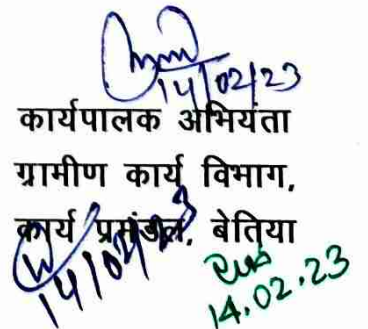 14/02/23
कार्यपालक अभियंता
ग्रामीण कार्य विभाग,
कार्य प्रमंडल, बेतिया
14/02/23
14.02.23